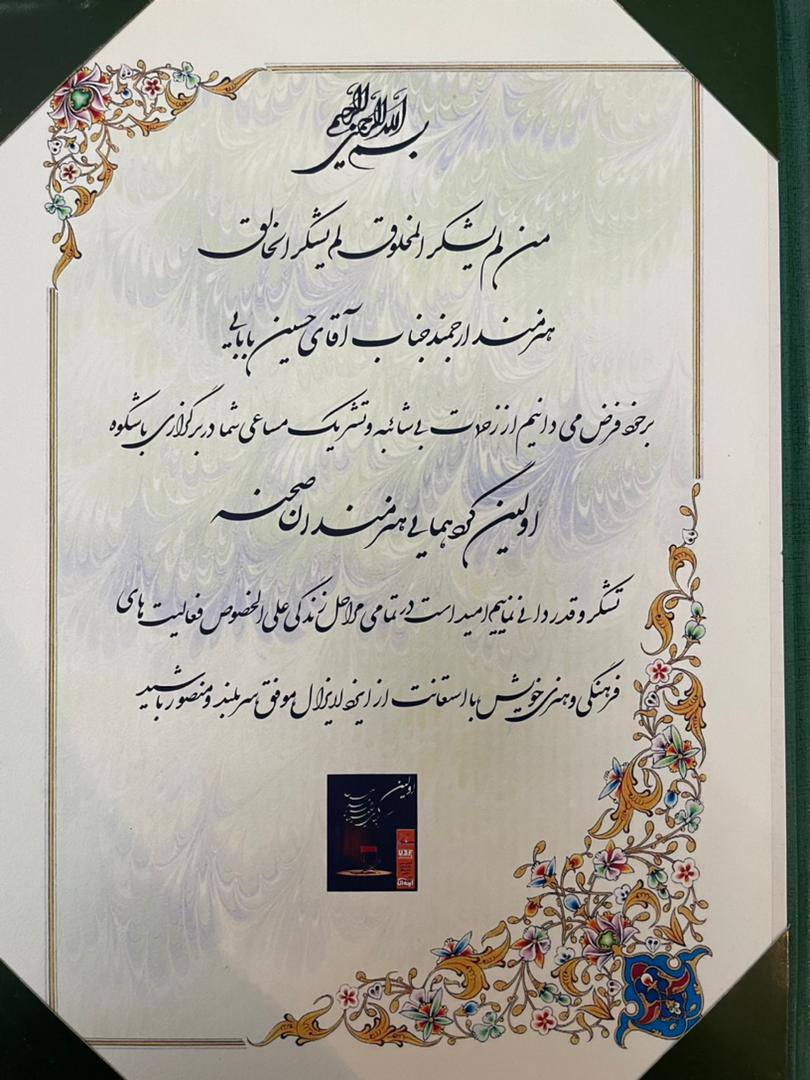 بسم الله الرحمن الرحیم
من لم یشکر المخلوق لم یشکر الخالق
هنرمند ارجمند جناب آقای حسین بابایی
برخود فرض می دانیم از زحمات بی شائبه و تشریک مساعی شما در برگزاری باشکوه
اولین گردهمایی هنرمندان صحنه
تشکر و قدردانی نماییم امید است در تمامی مراحل زندگی علی الخصوص فعالیت های
فرهنگی و هنری خویش با استعانت از ایزد لایزال موفق سربلند و منصور باشید
اولین